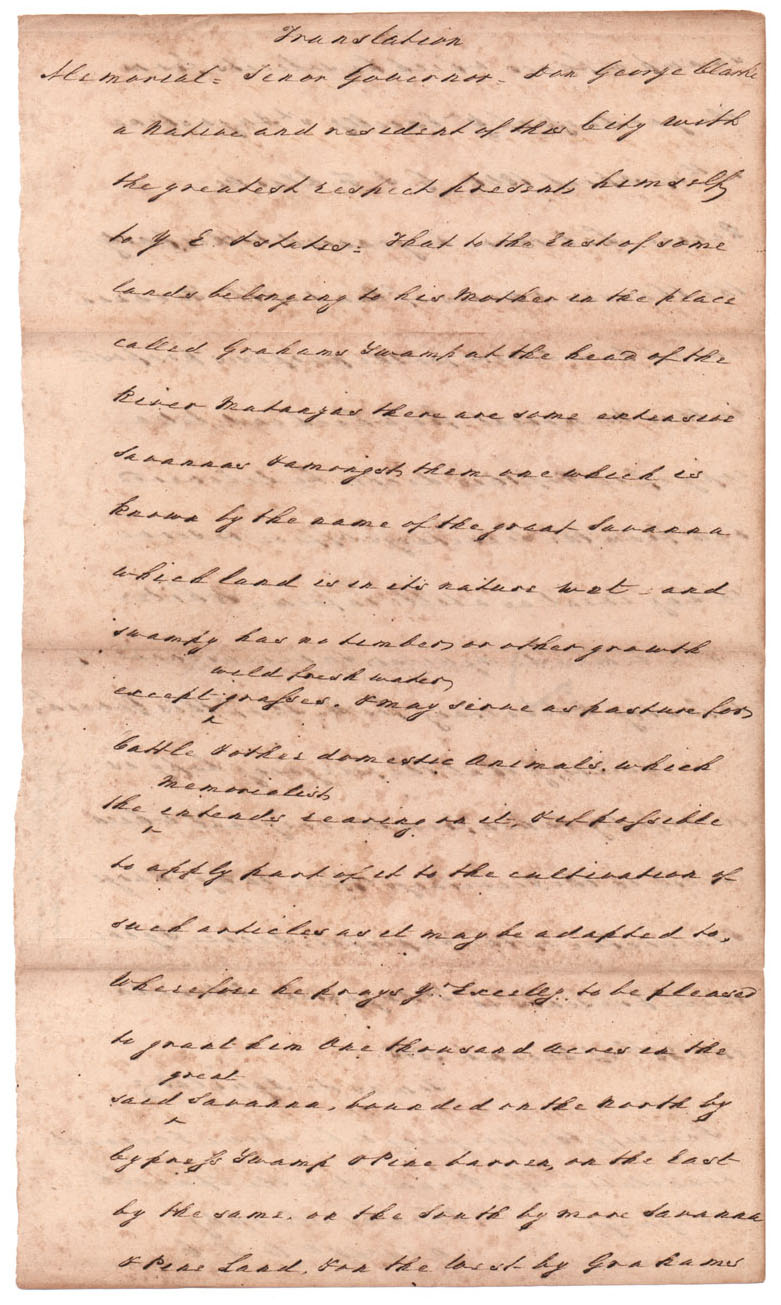 Translation
Memorial = Senor Governor = Don George Clarke
a Native and resident of this City with
the greatest respect presents himself
to Y. E. & states = That to the East of some
lands belonging to his Mother in the place
called Grahams Swamp at the head of the
River Matanzas there are some extensive
Savannas & amongst them one which is
known by the name of the great Savanna
which land is in its nature wet - and
swampy has no timber or other growth
wild fresh water
except ^ grasses. & may serve as pasture for
Cattle & other domestic Animals. which
Memorialist
the ^ intends rearing on it, & if possible
to apply part of it to the cultivation of
such articles as it may be adapted to,
Wherefore he prays Yr. Excellcy. to be pleased
to grant him One thousand Acres in the
great
said ^ Savanna, bounded on the North by
Cypress Swamp & Pine barren, on the East
by the same. on the South by more Savanna
& Pine Land. & on the West by Grahams